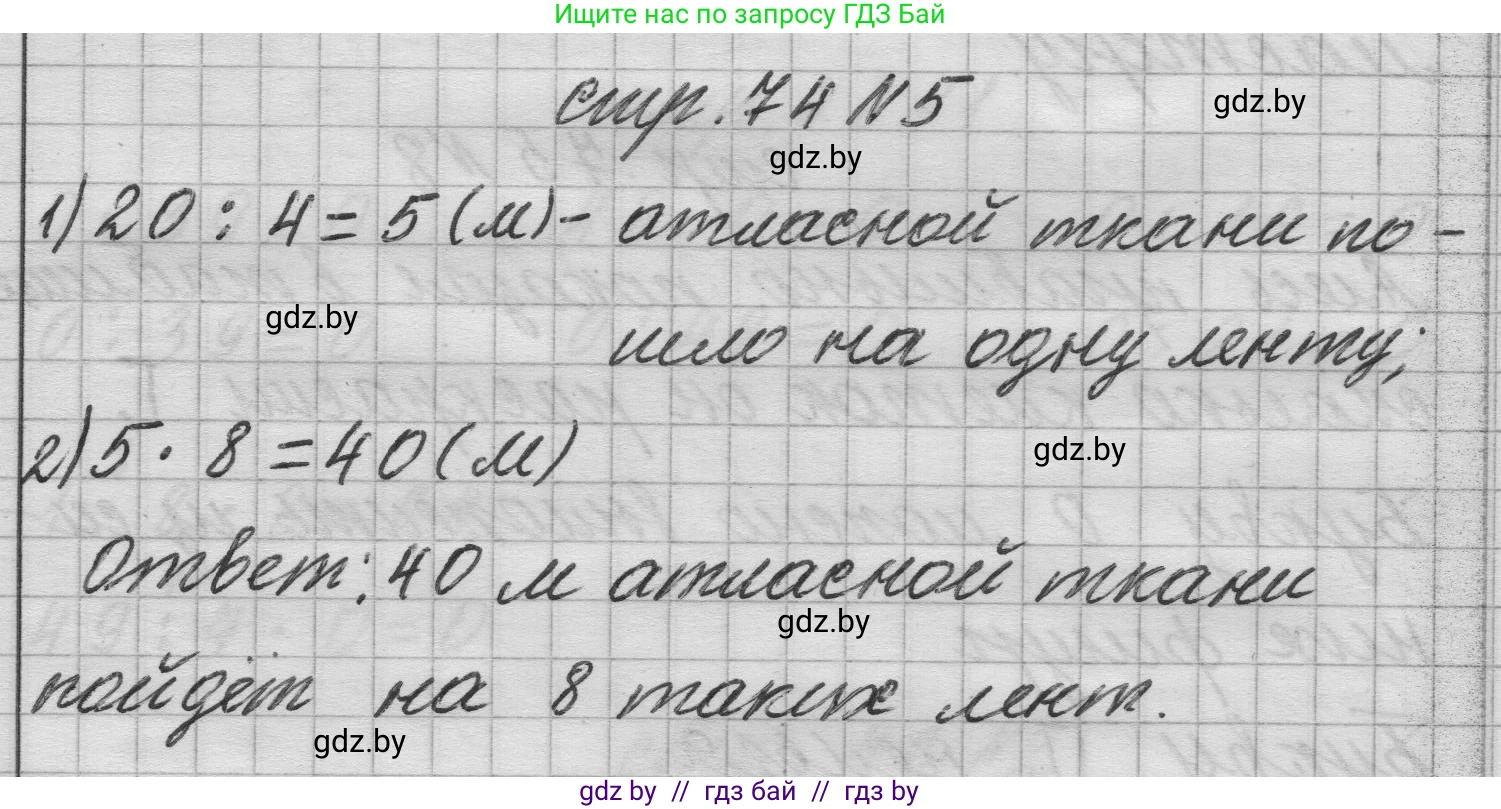 Ищите нас по запросу ГДЗ Бай
стр. 74 №5
gdz.by
gdz.by
1) 20 : 4 = 5 (м) - атласной ткани по-
gdz.by
шло на одну ленту;
2) 5 · 8 = 40 (м)
gdz.by
Ответ: 40 м атласной ткани
gdz.by
пойдёт на 8 таких лент.
gdz.by
gdz by // гдз бай // гдз by